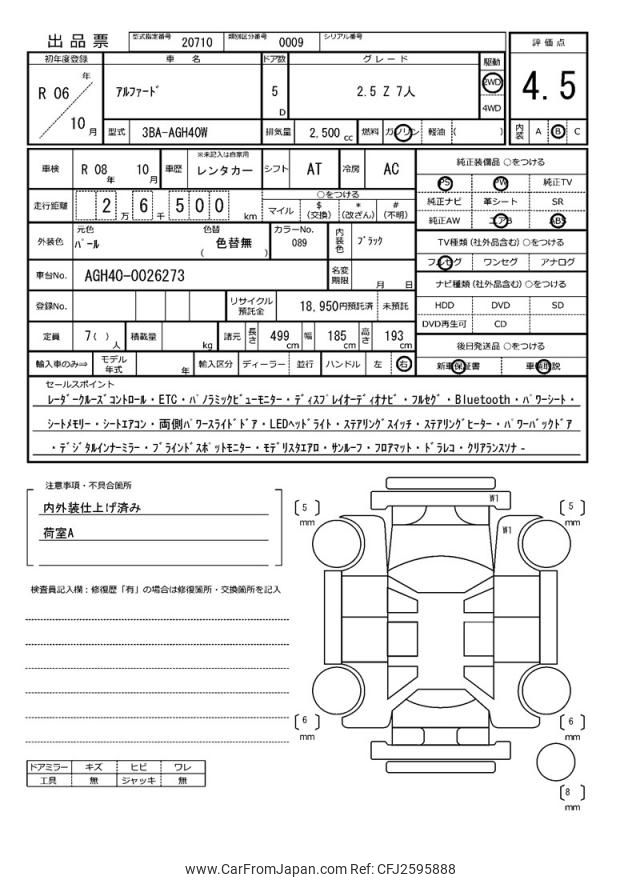 出品票 型式指定番号 20710 類別区分番号 0009 シリアル番号
評価点
4.5
内装 A B C
初年度登録 車名 ドア数 グレード 駆動
R 06 年 10 月 アルファード 5 D 2.5 Z 7人 2WD 4WD
型式 3BA-AGH40W 排気量 2,500 cc 燃料 ガソリン 軽油 ( )
車検 R 08 年 10 月 車歴 ※未記入は自家用 レンタカー シフト AT 冷房 AC
走行距離 2 万 6 千 5 0 0 km ○をつける
マイル $ (交換) * (改ざん) # (不明)
外装色 元色 パール 色替 ( 色替無 ) カラーNo. 089 内装色 ブラック
車台No. AGH40-0026273 名変期限 月 日
登録No. リサイクル預託金 18,950円預託済 未預託
定員 7( )人 積載量 kg 諸元 長さ 499 cm 幅 185 cm 高さ 193 cm
輸入車のみ⇒ モデル年式 年 輸入区分 ディーラー 並行 ハンドル 左 右
純正装備品 ○をつける
PS PW 純正TV
純正ナビ 革シート SR
純正AW エアB ABS
TV種類(社外品含む) ○をつける
フルセグ ワンセグ アナログ
ナビ種類(社外品含む) ○をつける
HDD DVD SD
DVD再生可 CD
後日発送品 ○をつける
新車保証書 車輌取説
セールスポイント
レーダークルーズコントロール・ETC・パノラミックビューモニター・ディスプレイオーディオナビ・フルセグ・Bluetooth・パワーシート・
シートメモリー・シートエアコン・両側パワースライドドア・LEDヘッドライト・ステアリングスイッチ・ステアリングヒーター・パワーバックドア
・デジタルインナーミラー・ブラインドスポットモニター・モデリスタエアロ・サンルーフ・フロアマット・ドラレコ・クリアランスソナ-
注意事項・不具合箇所
内外装仕上げ済み
荷室A
検査員記入欄：修復歴「有」の場合は修復箇所・交換箇所を記入
ドアミラー キズ ヒビ ワレ
工具 無 ジャッキ 無
W1
W1
[5] mm
[5] mm
[6] mm
[6] mm
[8] mm
www.CarFromJapan.com Ref: CFJ2595888